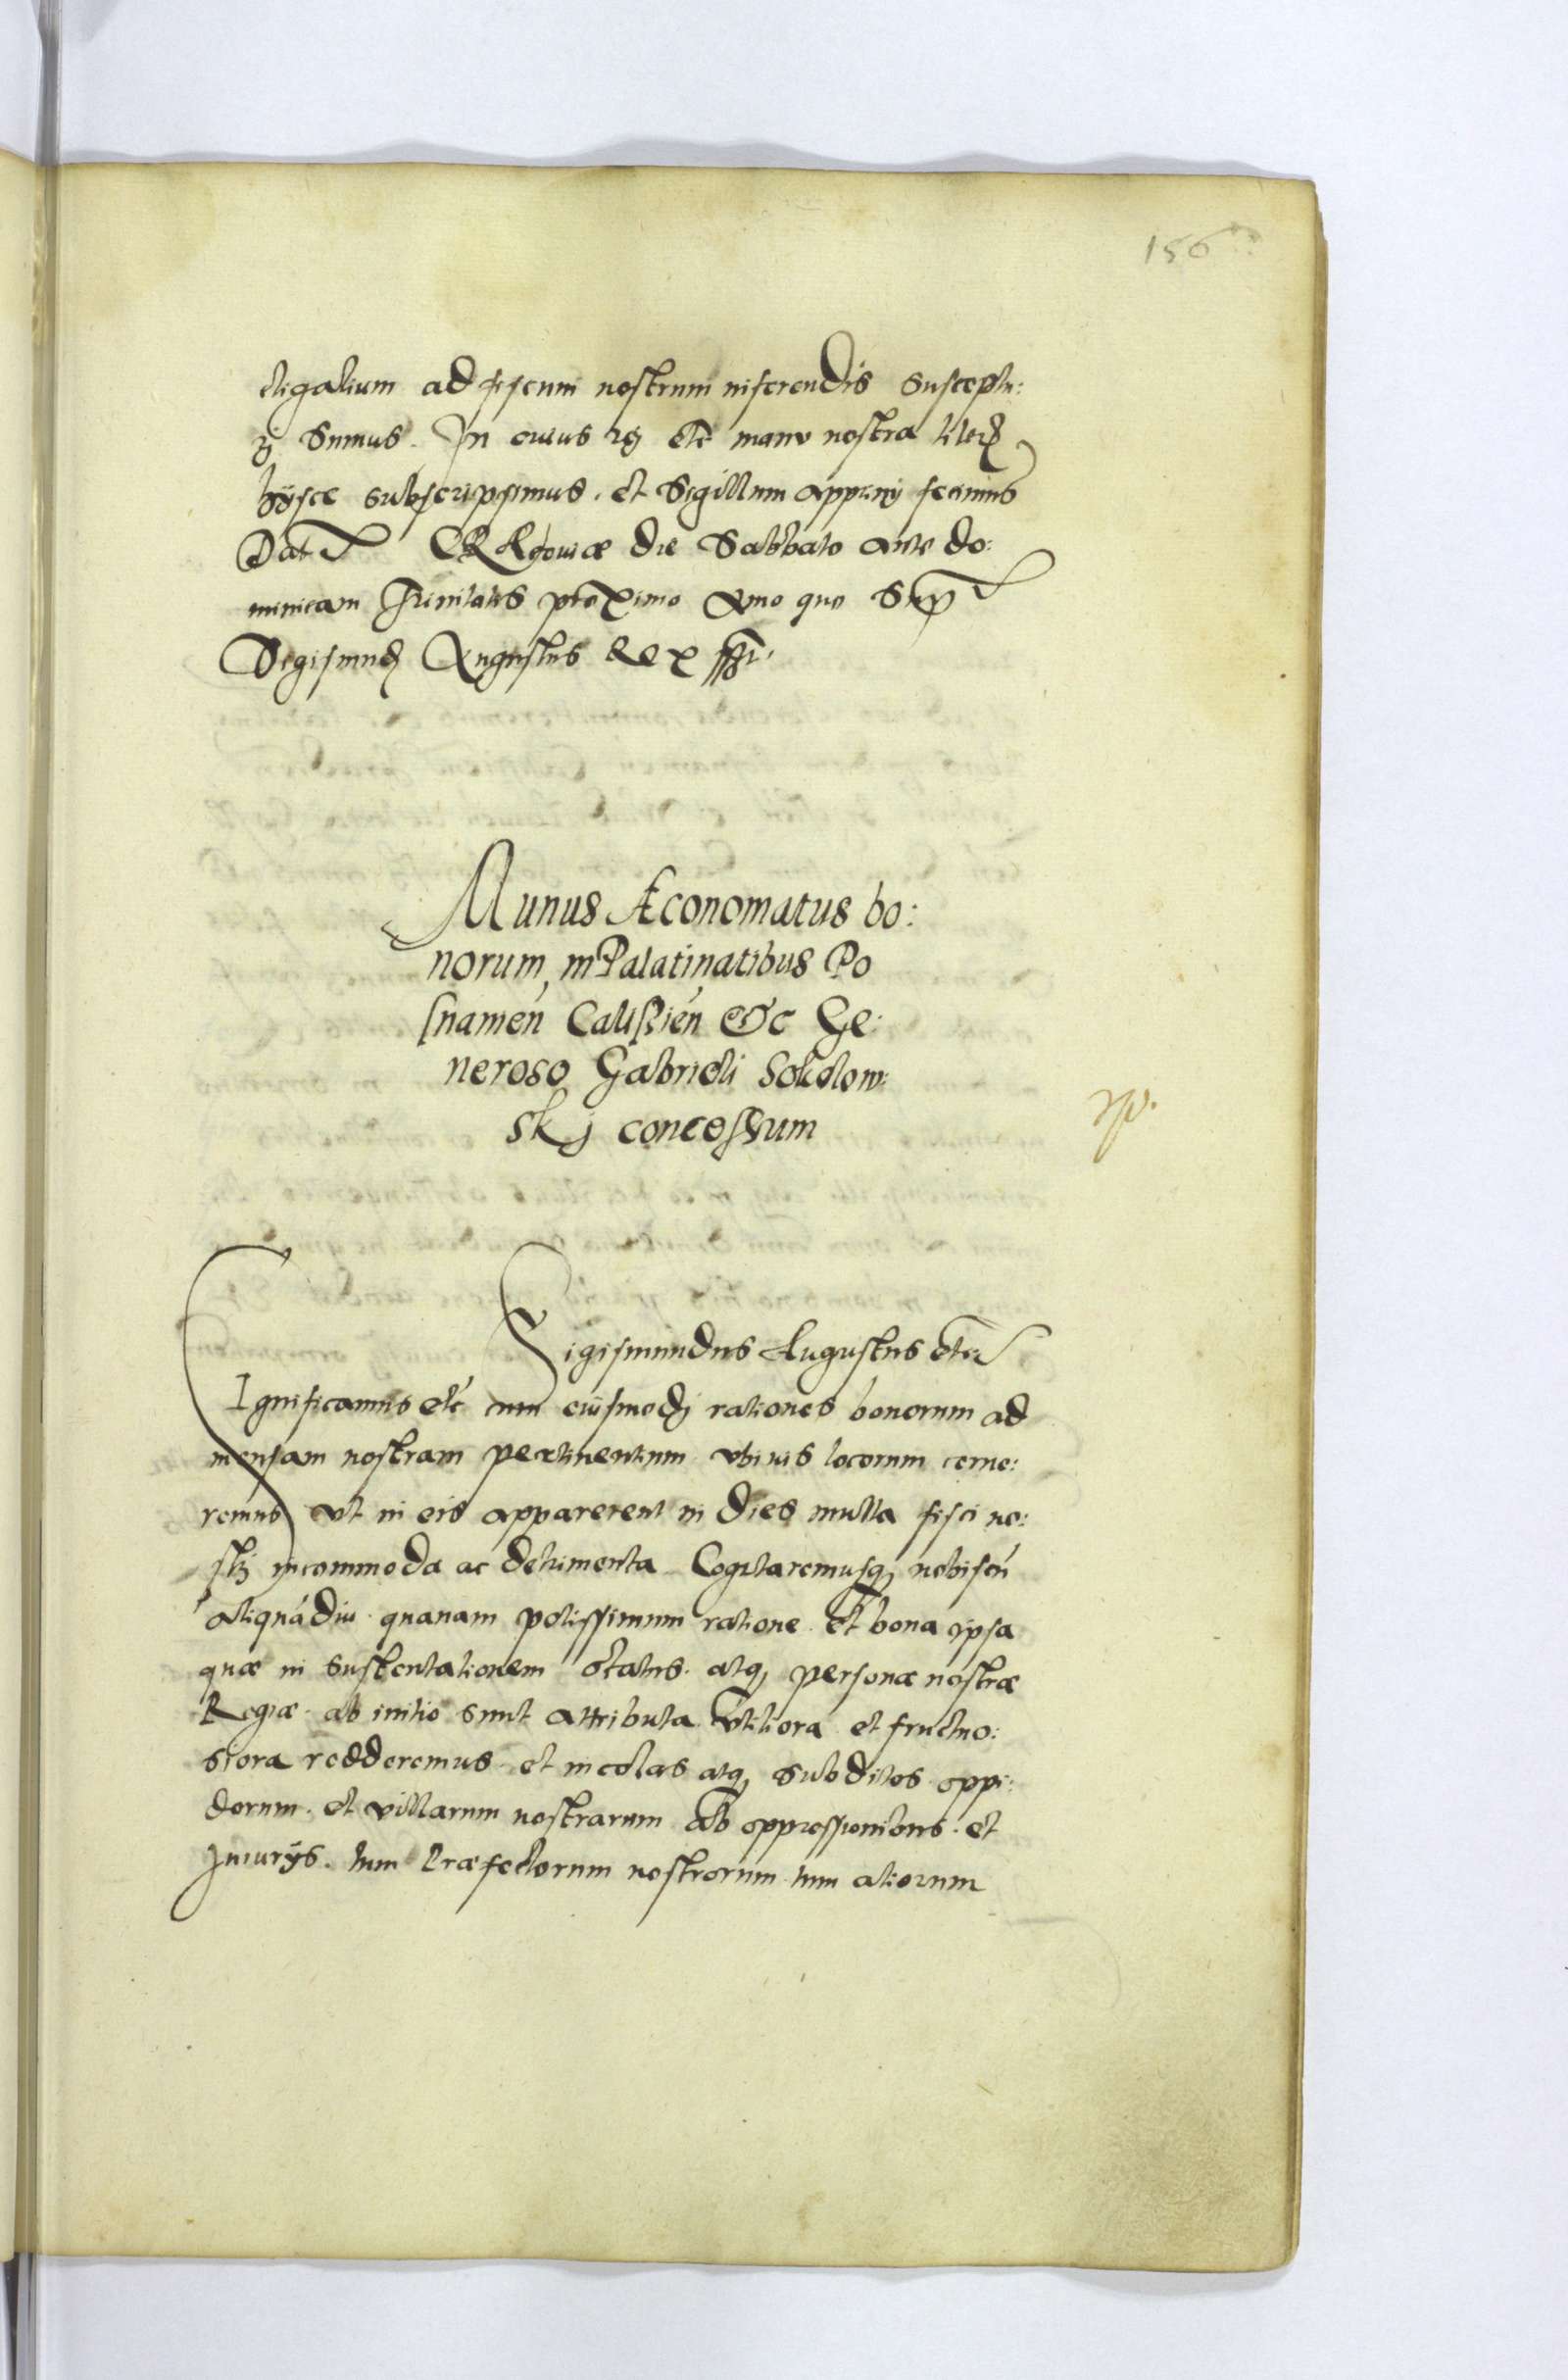 156
ctigalium ad fiscum nostrum inferendis susceptu:
ri Sumus. In cuius rei etc manu nostra literis
hijsce subscripsimus. et Sigillum apprimj fecimus
Dat CRAcoviæ die Sabbato ante do:
minicam Trinitatis proximo Anno quo Sup
Sigismundus Augustus Rex sst.
Munus Æconomatus bo:
norum, in Palatinatibus Po
snamen Calissien etc Ge:
neroso Gabrieli Sokolow:
skj concessum
Sigismundus Augustus etc
Ignificamus etc cum eiusmodj rationes bonorum ad
mensam nostram pertinentium ubivis locorum cerne:
remus ut in eis apparerent in dies multa fisci no:
stri incommoda ac detrimenta Cogitaremusq nobiscu
aliquádiu quanam potissimum ratione et bona ipsa
quæ in sustentationem status. atq personæ nostræ
Regiæ ab initio sunt attributa utiliora et fructuo:
siora redderemus et incolas atq subditos oppi:
dorum. et villarum nostrarum ab oppressionibus. et
Iniurijs. tum Præfectorum nostrorum. tum aliorum